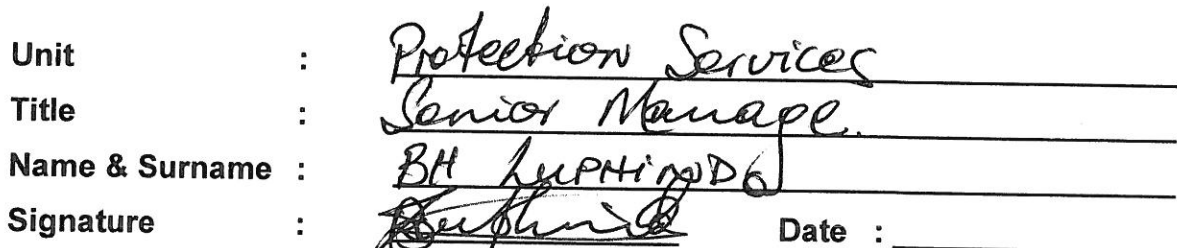 Unit : Protection Services
Title : Senior Manage.
Name & Surname : BH
Signature : Date :